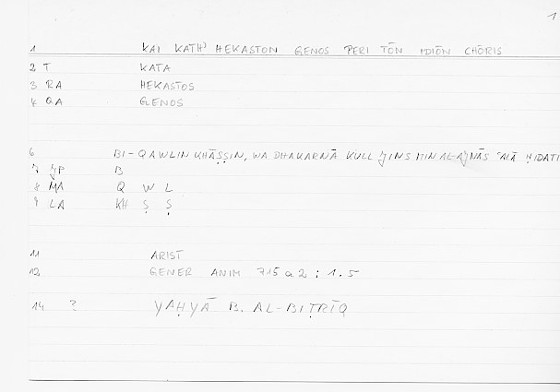 1
1 KAI KATH' HEKASTON GENOS PERI TŌN IDIŌN CHŌRIS
2 T KATA
3 RA HEKASTOS
4 GA GENOS
6 BI-QAWLIN KHĀṢṢIN, WA DHAKARNĀ KULL ǦINS MIN AL-AǦNĀS ʿALĀ ḤIDATI
7 B
8 MA Q W L
9 LA KH Ṣ Ṣ
11 ARIST
12 GENER ANIM 715 a 2 ; 1.5
14 ? YAḤYĀ B. AL-BIṬRĪQ